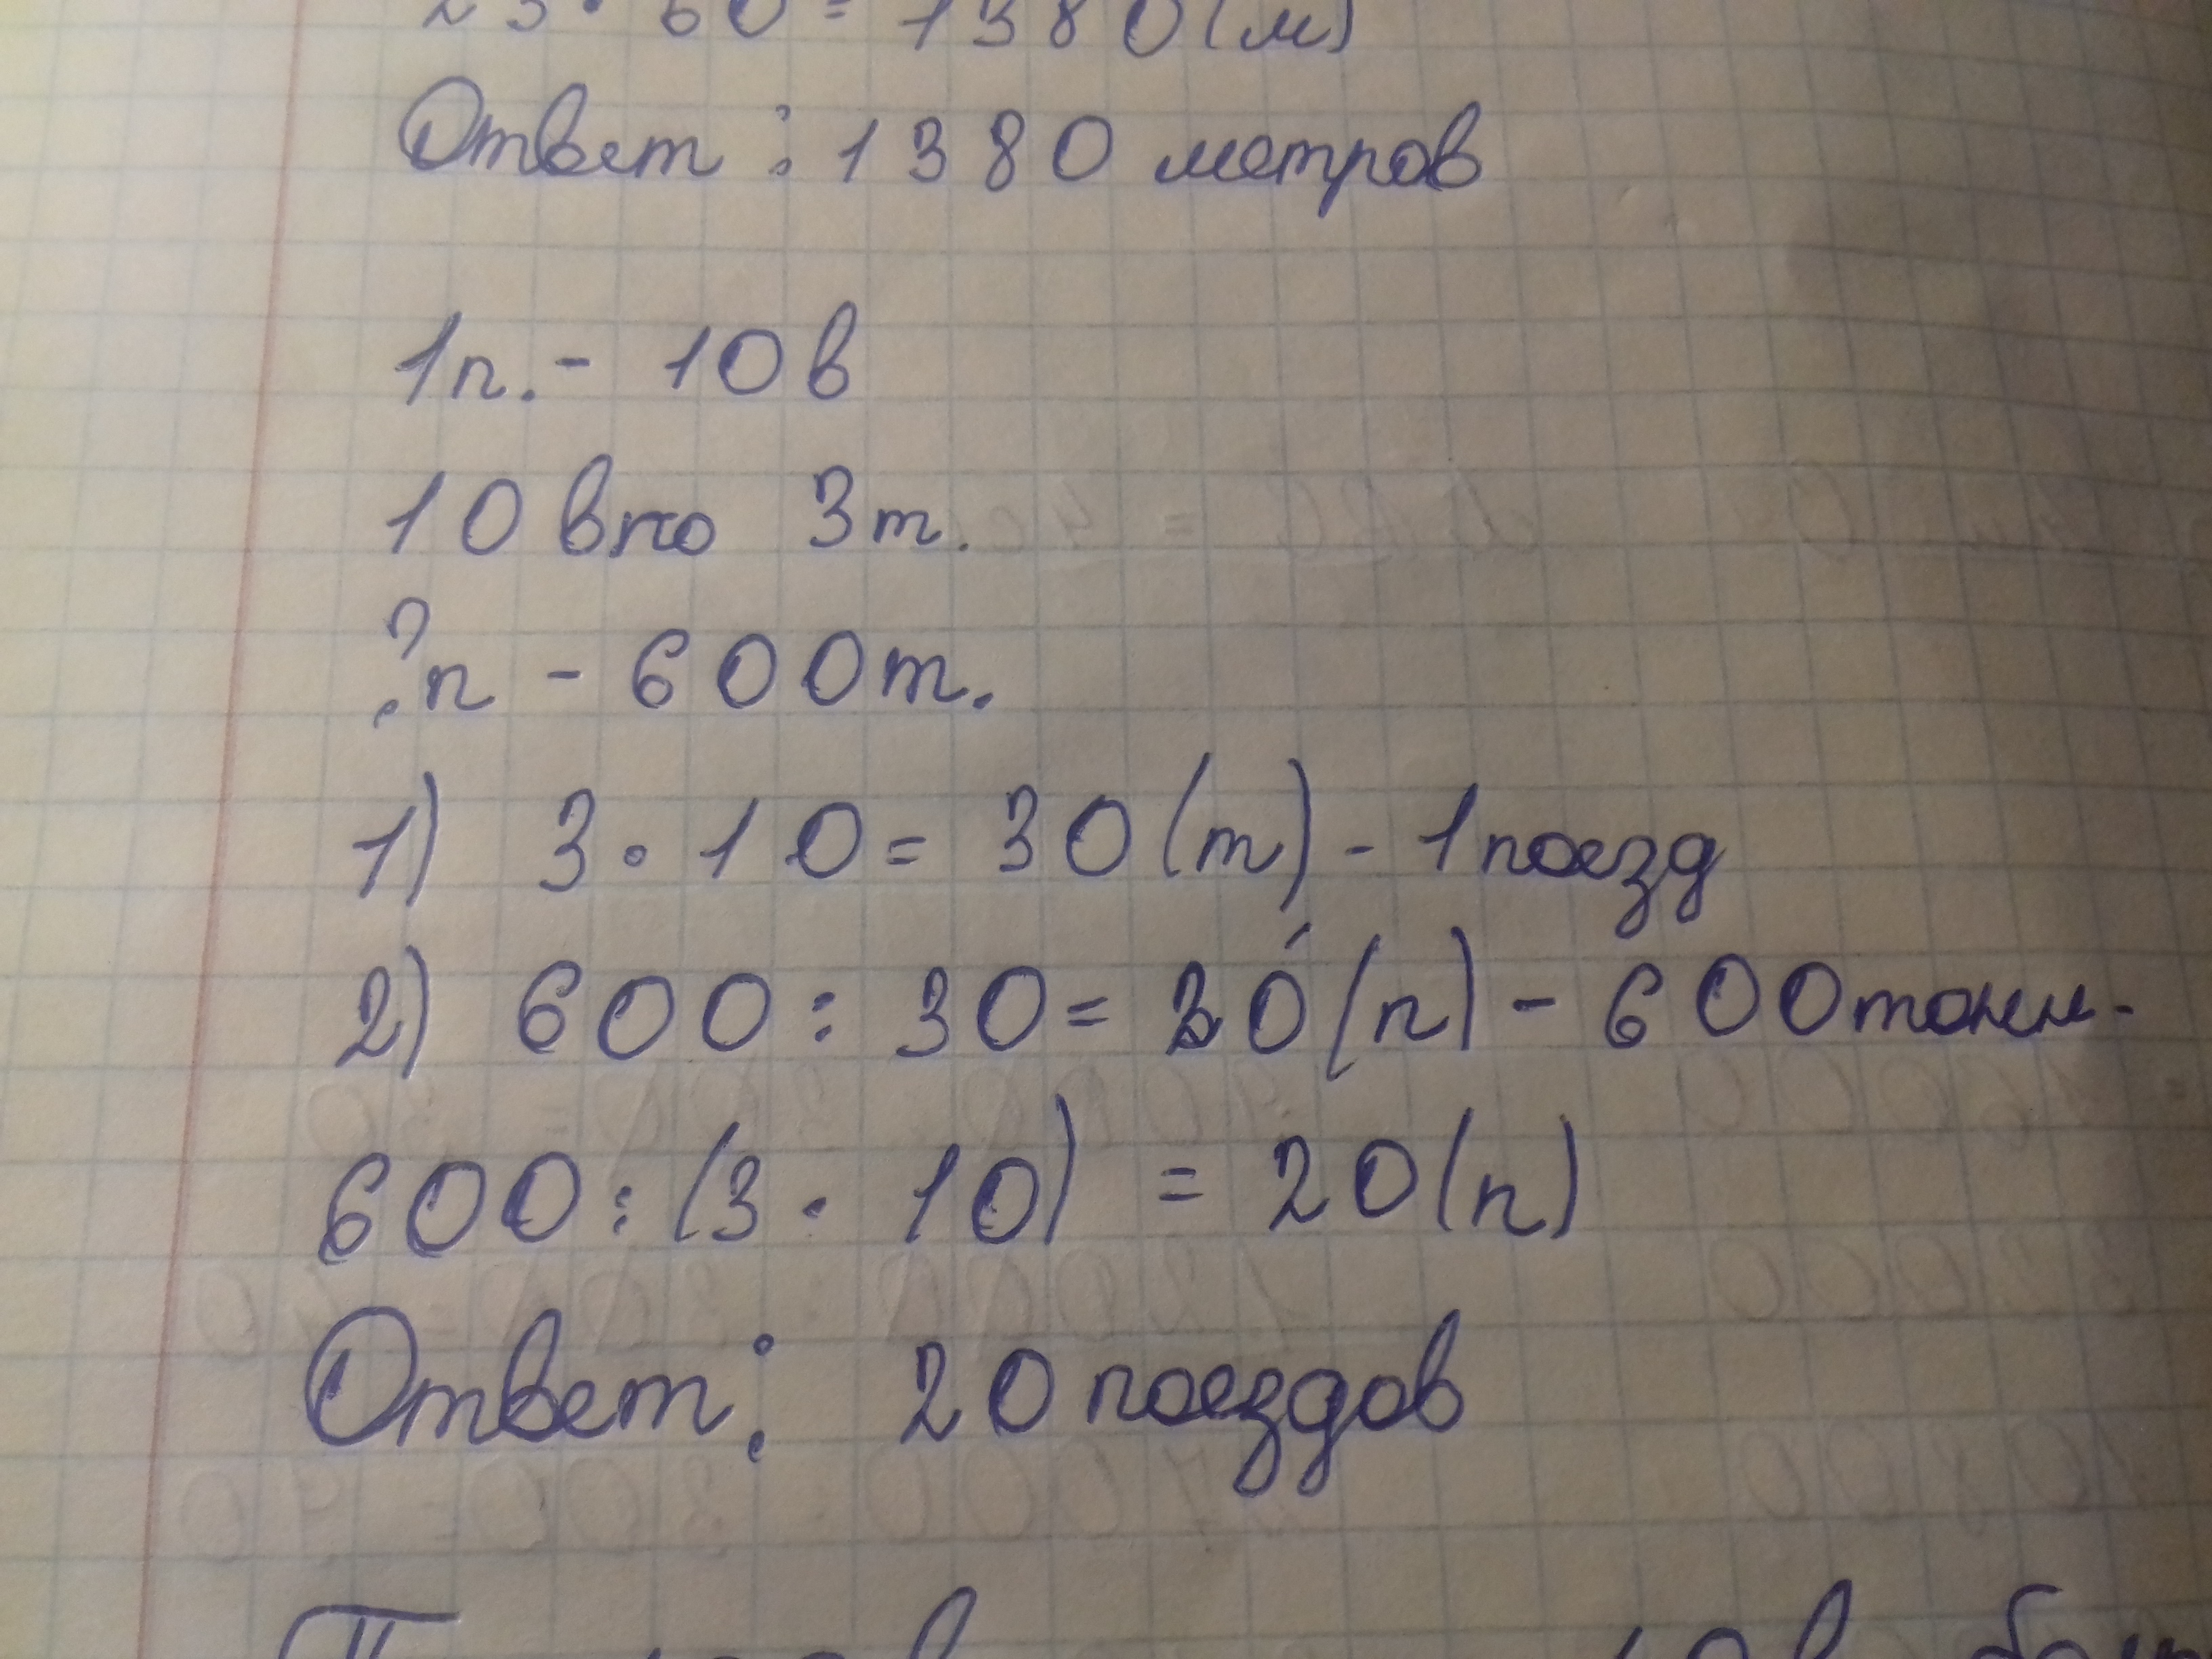 23 · 60 = 1380 (м)
Ответ : 1380 метров
1п. - 10 в
10 в по 3т.
?п - 600т.
1) 3 · 10 = 30 (т) - 1 поезд
2) 600 : 30 = 20 (п) - 600 тонн.
600 : (3 · 10) = 20 (п)
Ответ : 20 поездов